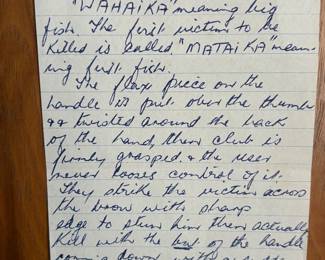 "WAHAIKA" meaning big
fish. The first victim to be
killed is called "MATAIKA" mean-
ing first fish.
The flax piece on the
handle is put over the thumb
&& twisted around the back
of the hand, then club is
firmly grasped, & the user
never looses control of it.
They strike the victim across
the brow with sharp
edge to stun him then actually
kill with the butt of the handle
coming down with